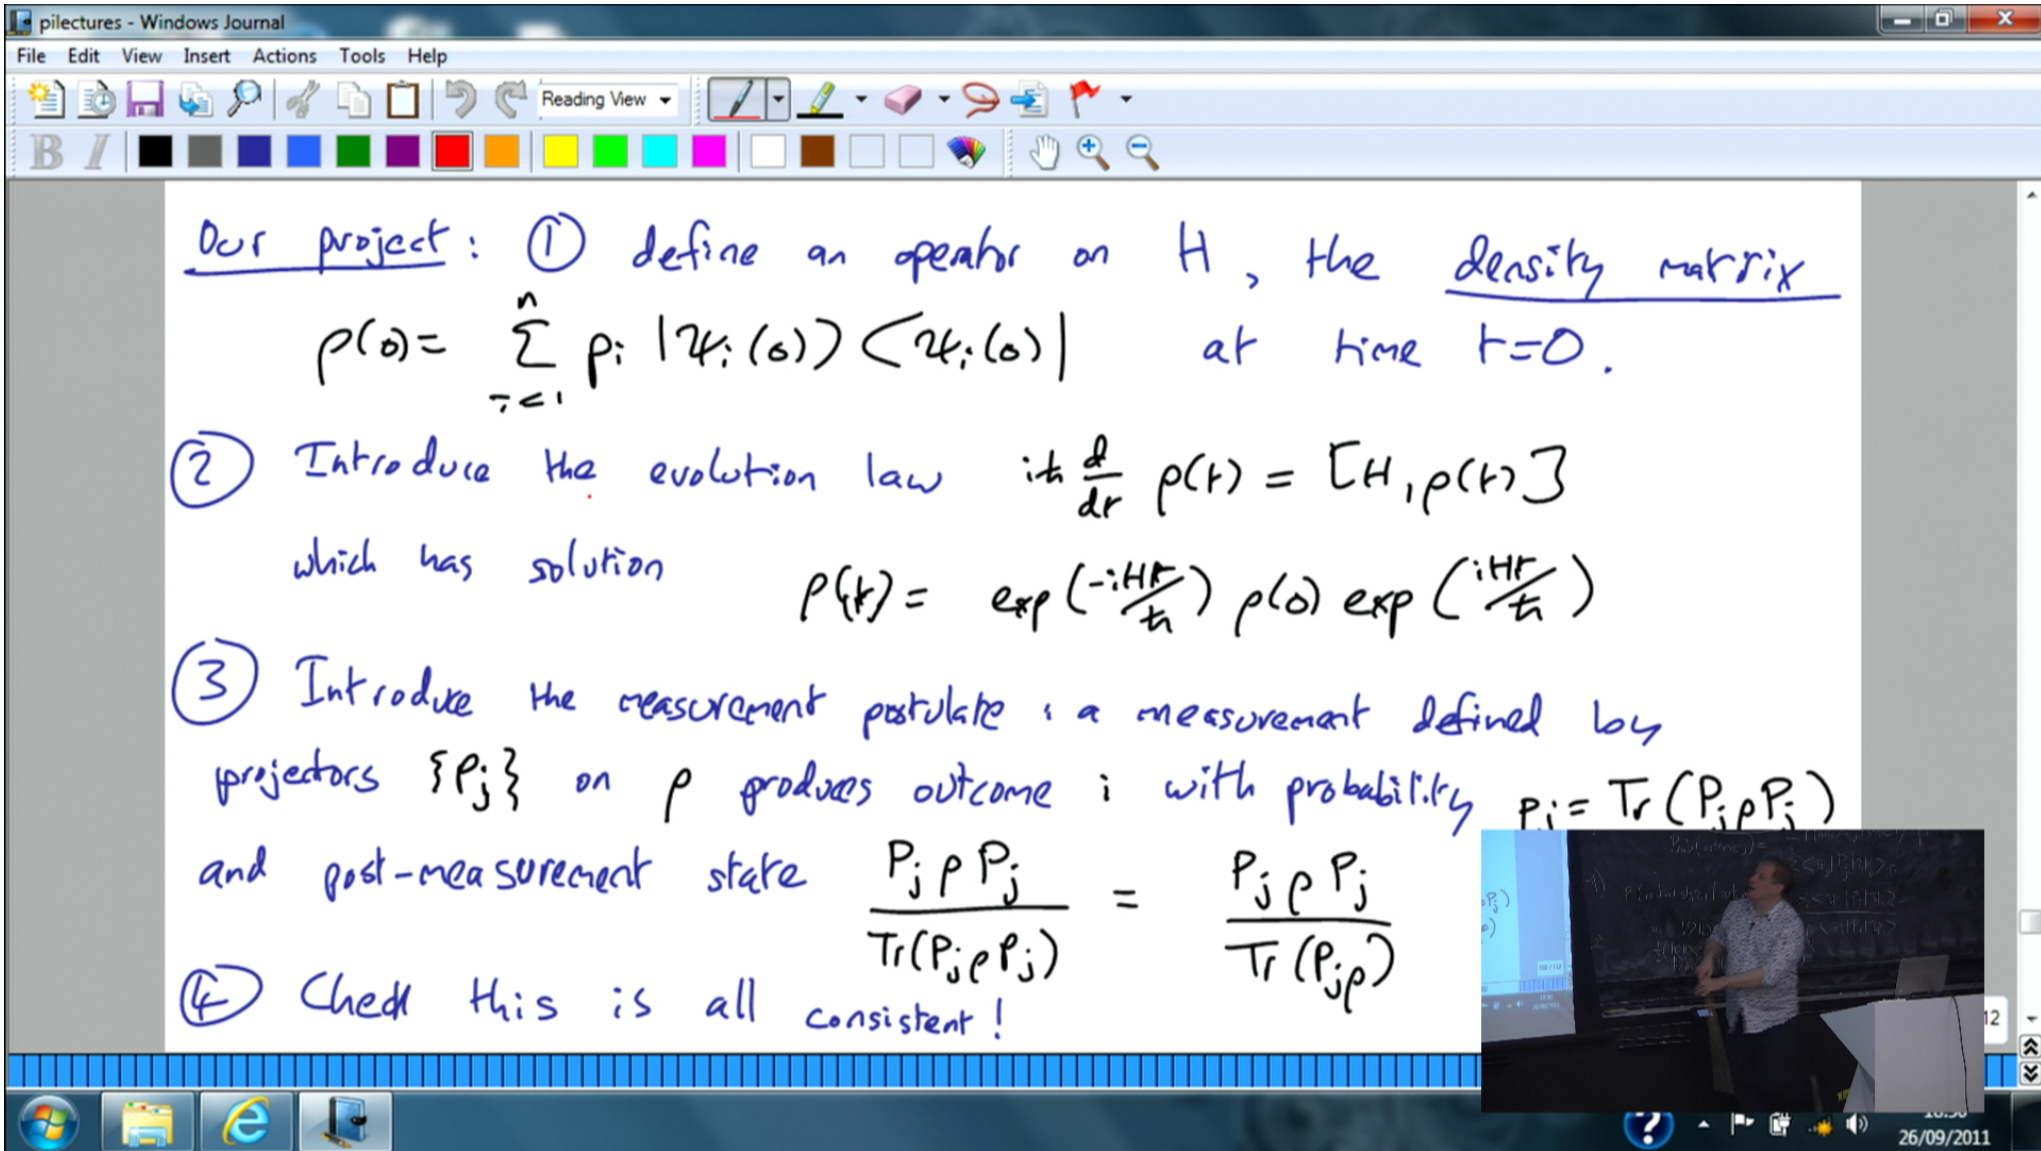 pilectures - Windows Journal
File Edit View Insert Actions Tools Help
Reading View
B I
Our project: ① define an operator on H, the density matrix
ρ(0) = Σ_{i=1}^{n} p_i |ψ_i(0)⟩⟨ψ_i(0)| at time t=0.
② Introduce the evolution law iħ d/dt ρ(t) = [H, ρ(t)]
which has solution
ρ(t) = exp(-iHt/ħ) ρ(0) exp(iHt/ħ)
③ Introduce the measurement postulate: a measurement defined by
projectors {P_j} on ρ produces outcome i with probability p_j = Tr(P_j ρ P_j)
and post-measurement state P_j ρ P_j / Tr(P_j ρ P_j) = P_j ρ P_j / Tr(P_j ρ)
④ Check this is all consistent!
12
26/09/2011